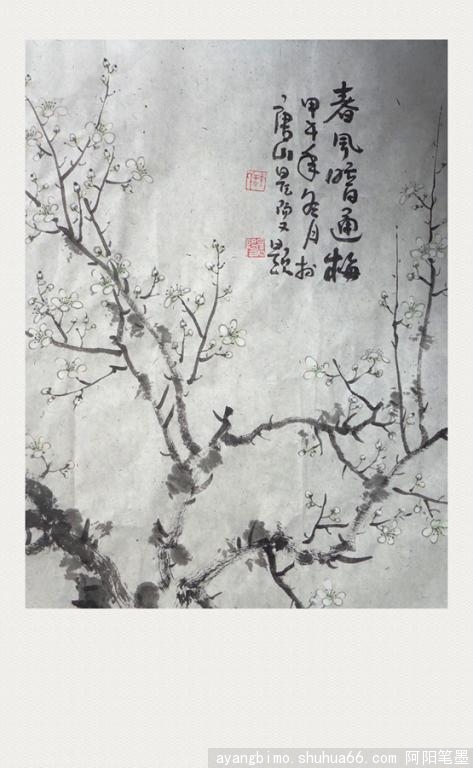 春風暗通梅
甲午年冬月於
唐山
題
ayangbimo.shuhua66.com 阿阳笔墨